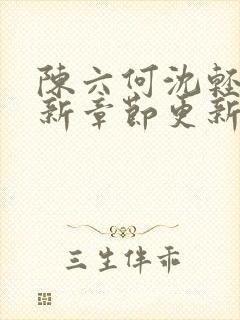 陳六何沈輕
新章節更新
三生伴乖